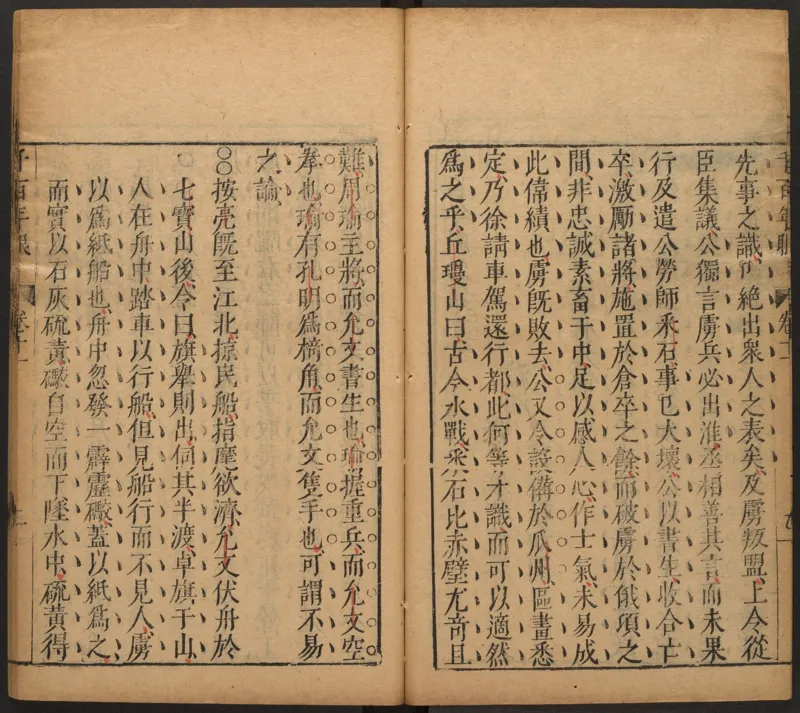 先事之識、絶出衆人之表矣及虜叛盟上令從
臣集議公獨言虜兵必出淮丞相善其言而未果
行及遣公勞師釆石事已大壞公以書生收合亡
卒激勵諸將施置於倉卒之餘而破虜於俄頃之
間非忠誠素畜于中足以感人心作士氣未易成
此偉績也虜既敗去公又令設備於瓜州區畫悉
定乃徐請車駕還行都此何等才識而可以適然
爲之乎丘瓊山曰古今水戰釆石比赤壁尤竒且
難周瑜主將而允文書生也瑜握重兵而允文空
拳也瑜有孔明爲犄角而允文隻手也可謂不易
之論
○○按亮既至江北掠民船指麾欲濟允文伏舟於
七寶山後令曰旗舉則出伺其半渡卓旗于山
人在舟中踏車以行船但見船行而不見人虜
以爲紙船也舟中忽發一霹靂礮蓋以紙爲之
而實以石灰硫黄礮自空而下墜水中硫黄得
千百年眼
卷十一